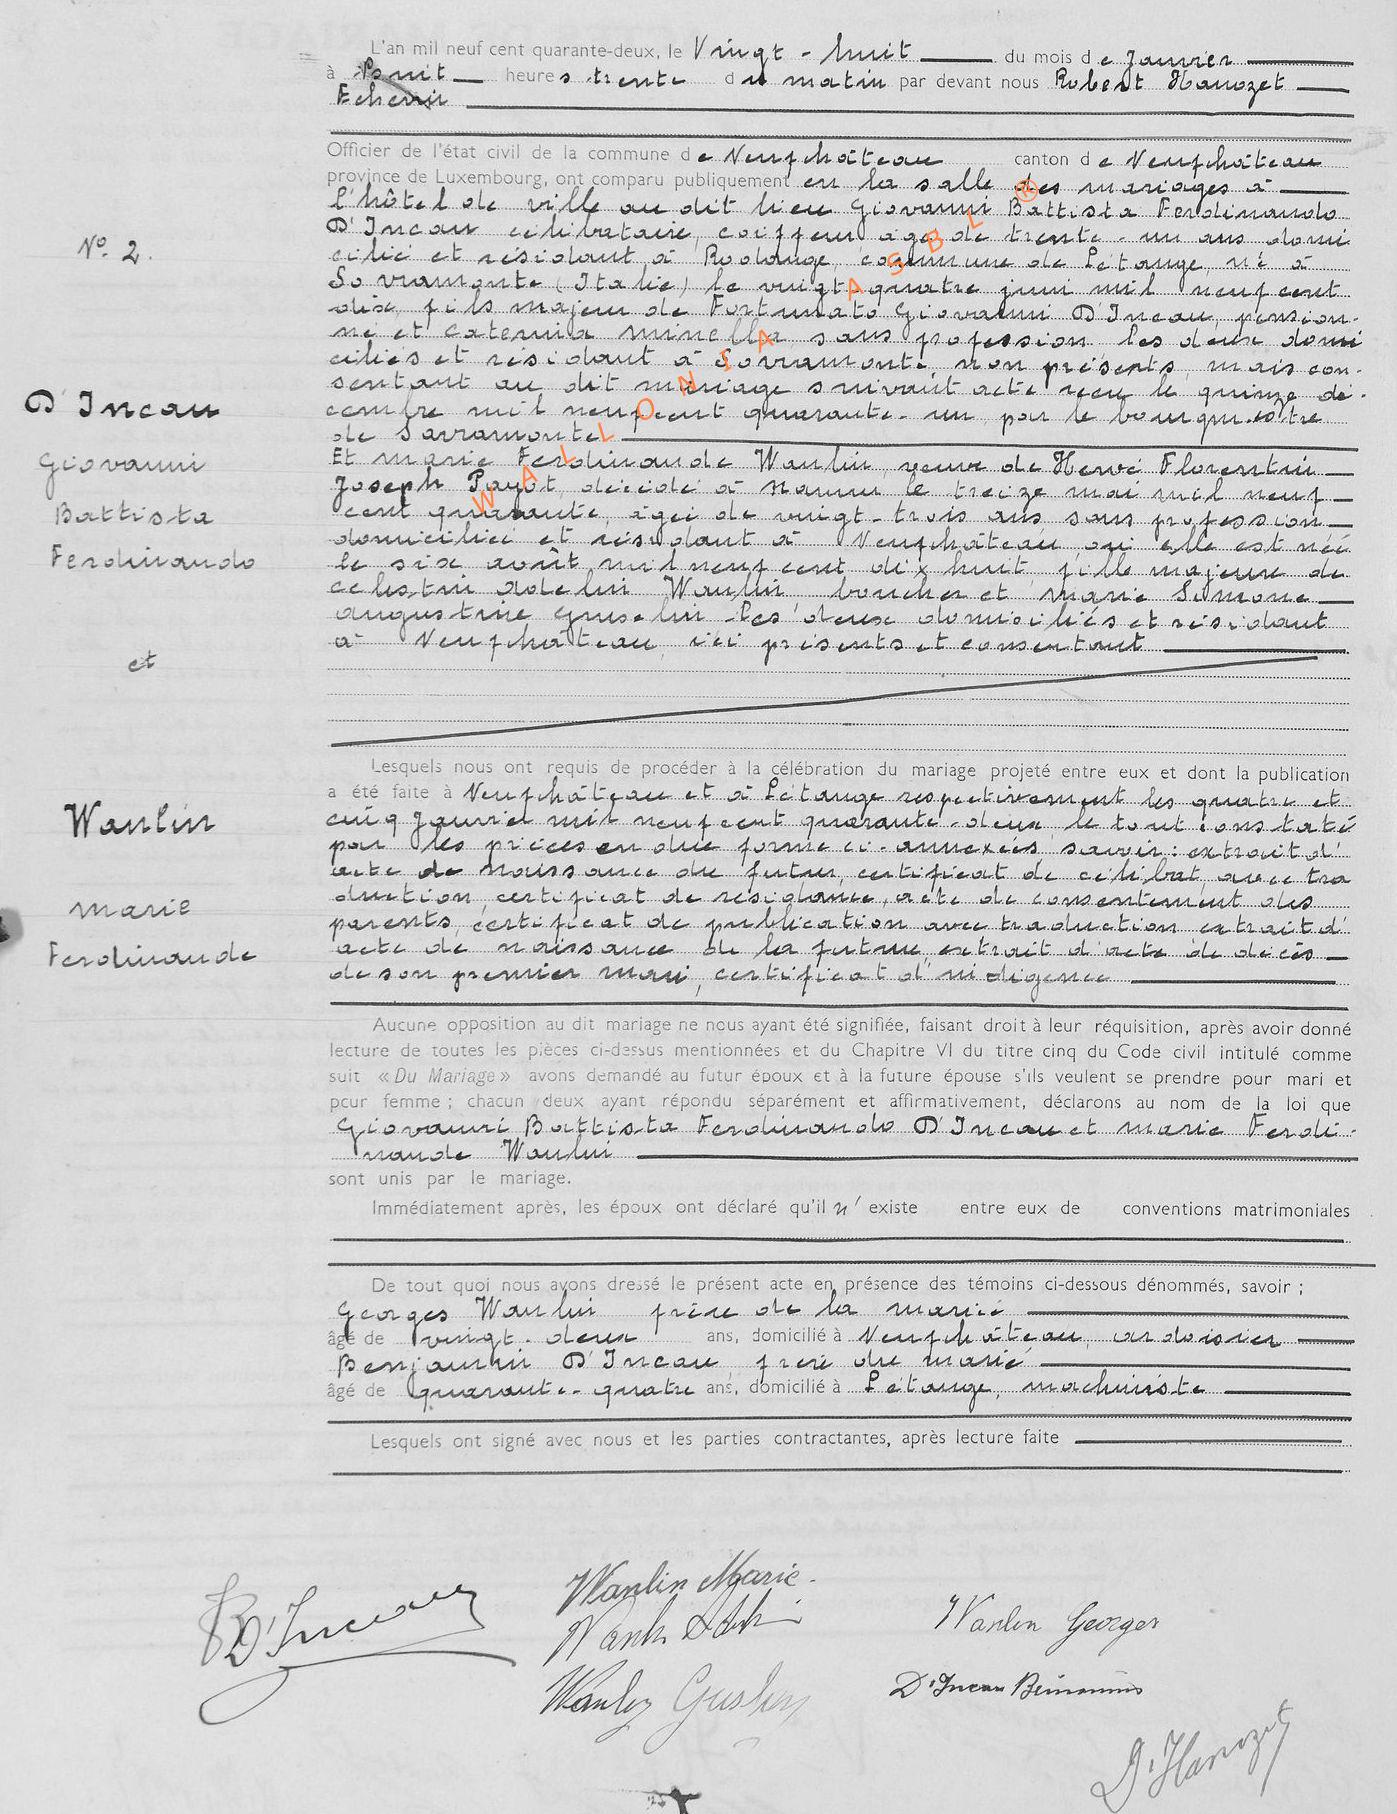 L'an mil neuf cent quarante-deux, le Vingt-huit du mois de Janvier
à huit heures trente du matin par devant nous Robert Hanozet
Echevin
Officier de l'état civil de la commune de Neufchâteau canton de Neufchâteau
province de Luxembourg, ont comparu publiquement en la salle des mariages à
l'hôtel de ville au dit lieu Giovanni Battista Ferdinando
D'Incau célibataire, coiffeur âgé de trente-un ans domi
cilié et résidant à Rodange, commune de Pétange, né à
Sovramonte (Italie) le vingt quatre juin mil neuf cent
dix, fils majeur de Fortunato Giovanni D'Incau, pension-
né et Caterina Minella sans profession les deux domi
ciliés et résidant à Sovramonte, non présents, mais con-
sentant au dit mariage suivant acte reçu le quinze dé-
cembre mil neuf cent quarante-un par le bourgmestre
de Sovramonte
Et Marie Ferdinande Wanlin, veuve de Hervé Florentin
Joseph Payot, décédé à Namur le treize mai mil neuf
cent quarante, âgée de vingt-trois ans sans profession
domiciliée et résidant à Neufchâteau, où elle est née
le six août mil neuf cent dix huit, fille majeure de
Celestin Adelin Wanlin boucher et Marie Simone
Augustine Guselin les deux domiciliés et résidant
à Neufchâteau, ici présents et consentant
N° 2.
D'Incau
Giovanni
Battista
Ferdinando
et
Wanlin
Marie
Ferdinande
Lesquels nous ont requis de procéder à la célébration du mariage projeté entre eux et dont la publication
a été faite à Neufchâteau et à Pétange respectivement les quatre et
cinq Janvier mil neuf cent quarante-deux, le tout constaté
par les pièces en due forme ci-annexées savoir: extrait d'
acte de naissance du futur, certificat de célibat avec tra
duction, certificat de résidence, acte de consentement des
parents, certificat de publication avec traduction extrait d'
acte de naissance de la future, extrait d'acte de décès
de son premier mari, certificat d'indigence
Aucune opposition au dit mariage ne nous ayant été signifiée, faisant droit à leur réquisition, après avoir donné
lecture de toutes les pièces ci-dessus mentionnées et du Chapitre VI du titre cinq du Code civil intitulé comme
suit «Du Mariage» avons demandé au futur époux et à la future épouse s'ils veulent se prendre pour mari et
pour femme ; chacun deux ayant répondu séparément et affirmativement, déclarons au nom de la loi que
Giovanni Battista Ferdinando D'Incau et Marie Ferdi-
nande Wanlin
sont unis par le mariage.
Immédiatement après, les époux ont déclaré qu'il n'existe entre eux de conventions matrimoniales
De tout quoi nous avons dressé le présent acte en présence des témoins ci-dessous dénommés, savoir ;
Georges Wanlin frère de la mariée
âgé de vingt-deux ans, domicilié à Neufchâteau, ardoisier
Benjamin D'Incau, frère du marié
âgé de quarante-quatre ans, domicilié à Pétange, machiniste
Lesquels ont signé avec nous et les parties contractantes, après lecture faite
D'Incau
Wanlin Marie
Wanlin
Wanlin Georges
D'Incau Beniamino
Hanozet
WALLONIA ASBL ®